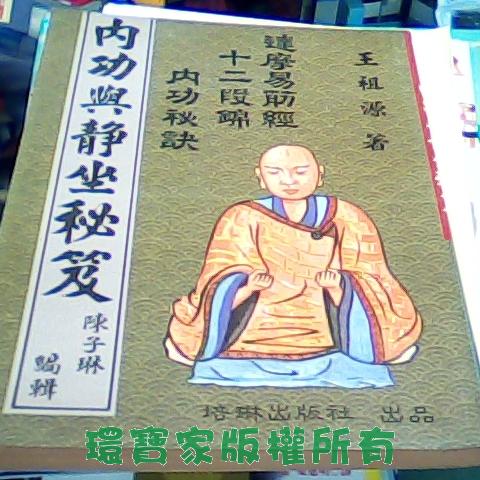 內功與静坐秘笈
陳子琳
編輯
達摩易筋經
十二段錦
內功秘訣
王祖源著
培琳出版社 出品
環寶家版權所有